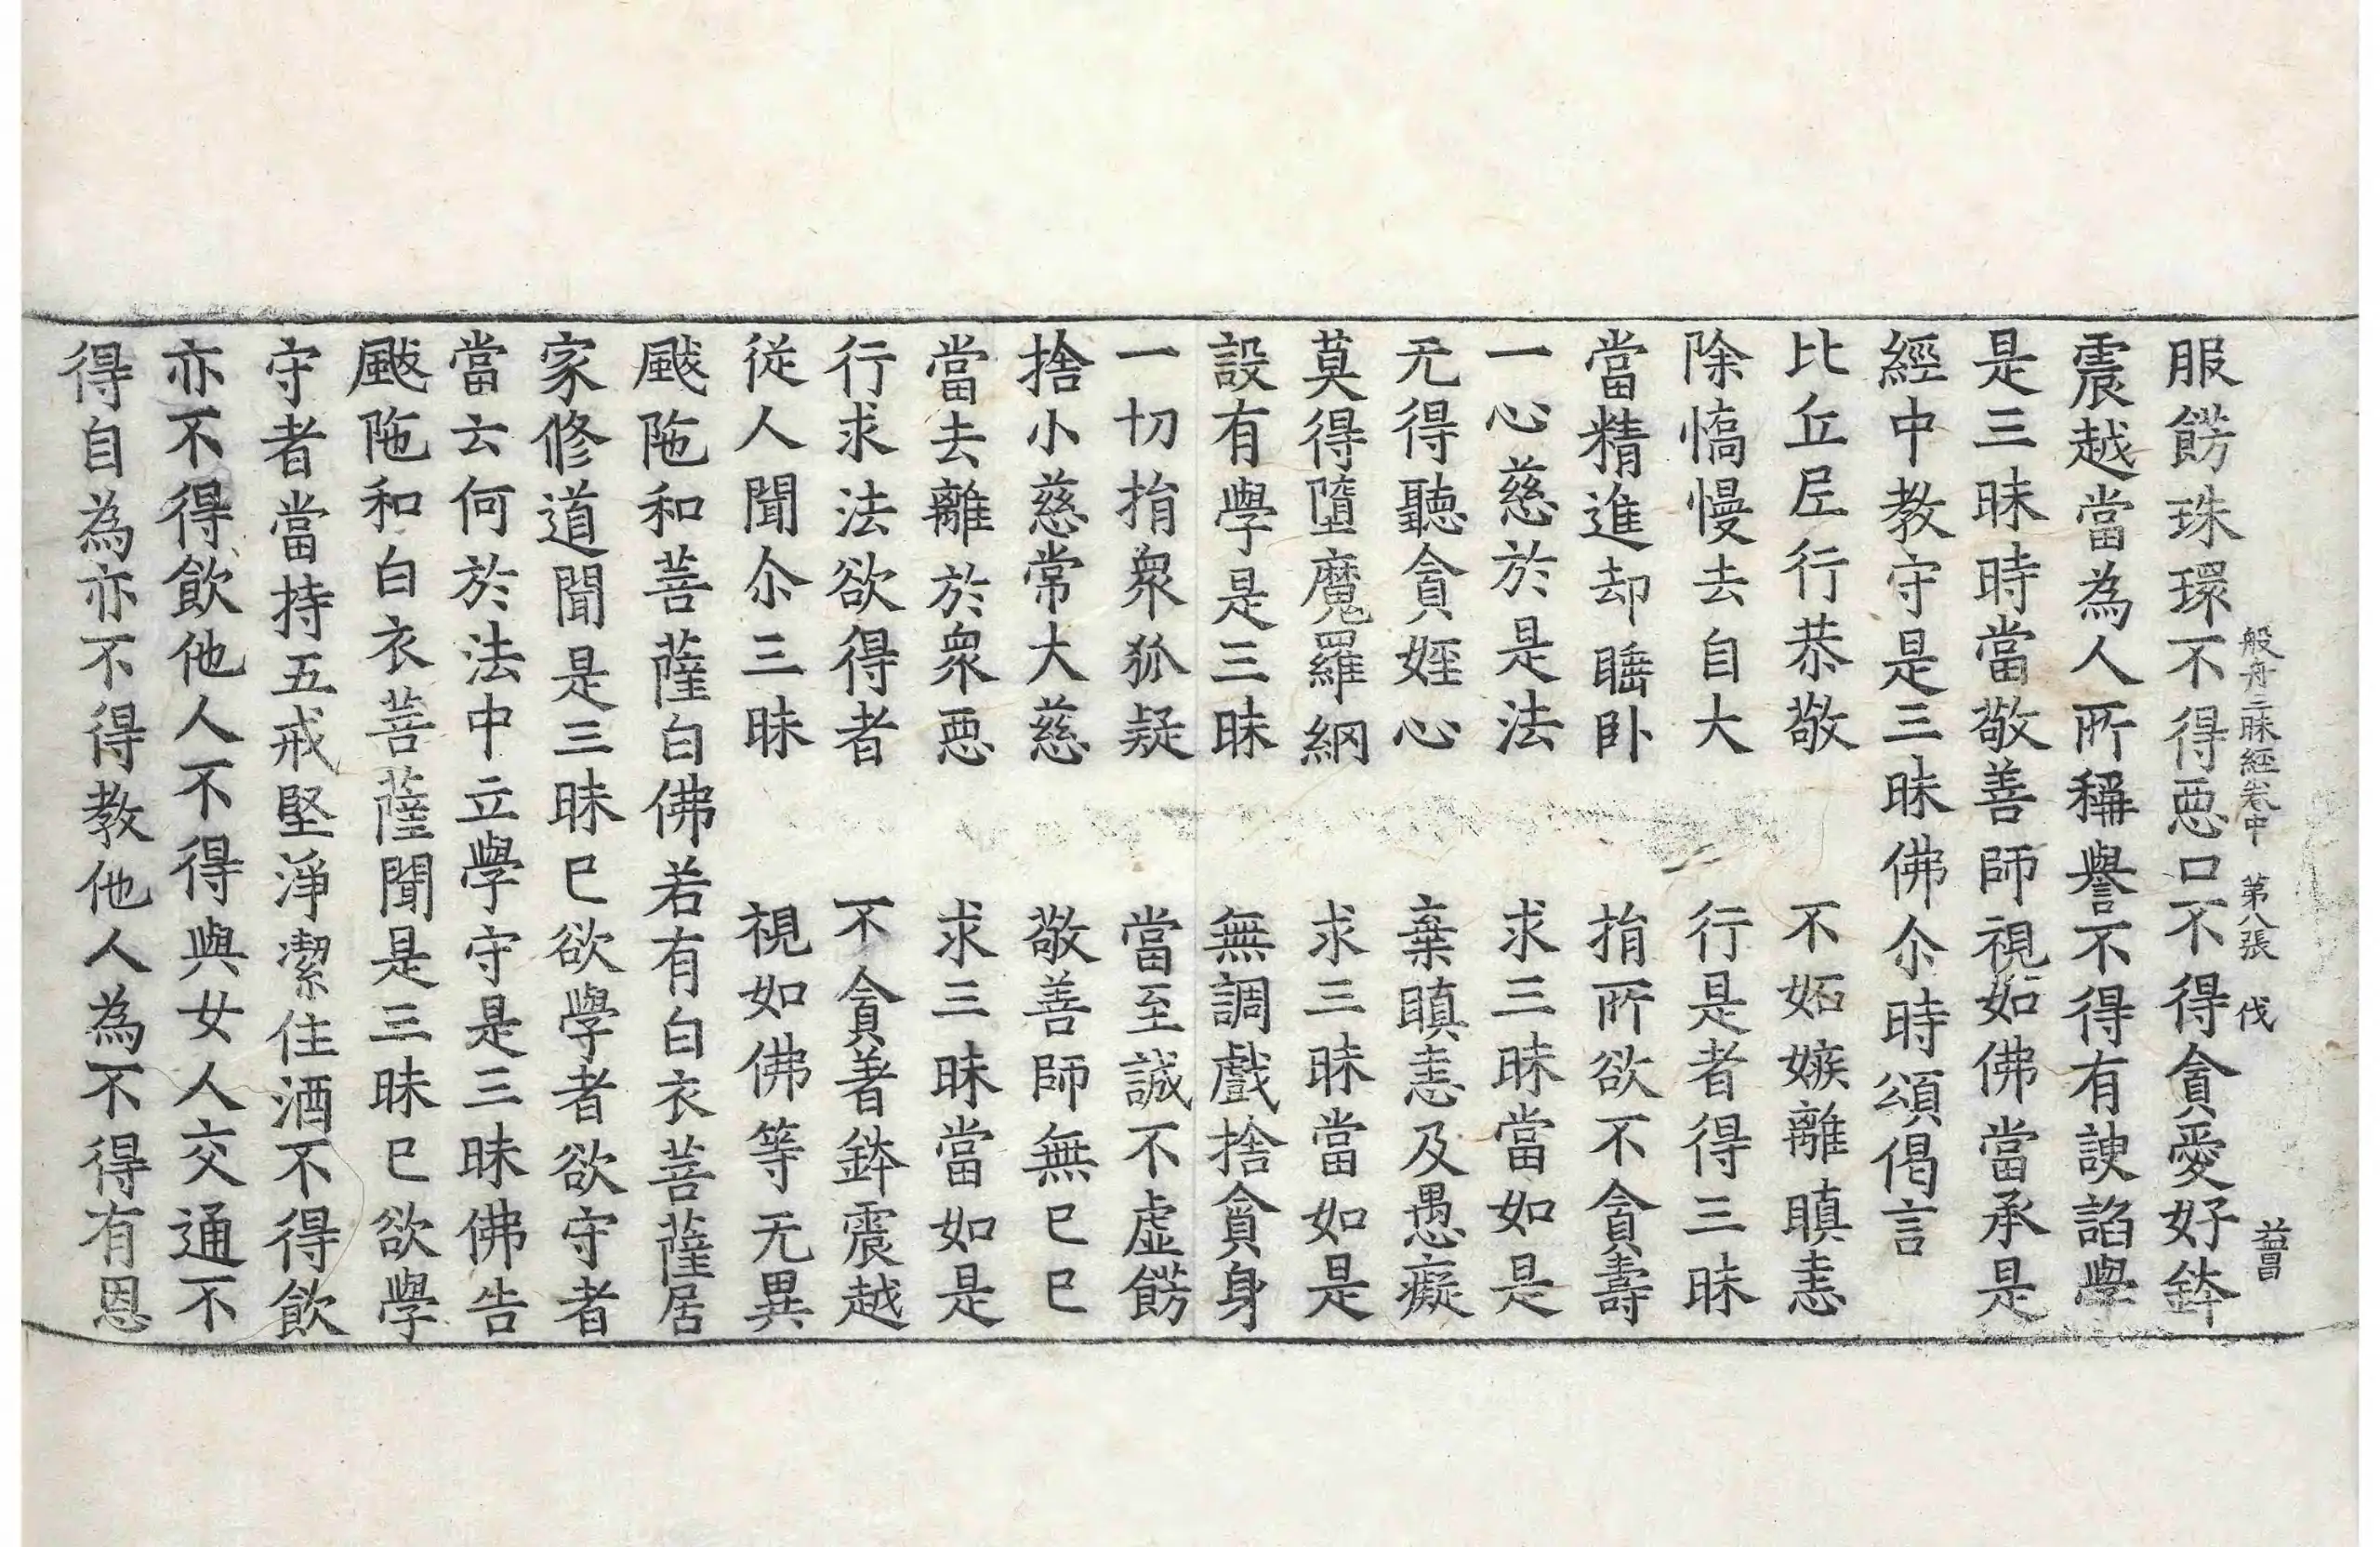 服餝珠環不得悪口不得貪愛好鉢
般舟三昧經卷中　第八張　伐
震越當為人所稱譽不得有諛諂學
是三昧時當敬善師視如佛當承是
經中教守是三昧佛尒時頌偈言
比丘尼行恭敬　不妬嫉離瞋恚
除憍慢去自大　行是者得三昧
當精進却睡卧　捐所欲不貪壽
一心慈於是法　求三昧當如是
无得聽貪婬心　棄瞋恚及愚癡
莫得墮魔羅網　求三昧當如是
設有學是三昧　無調戲捨貪身
一切捐衆狐疑　當至誠不虛餝
捨小慈常大慈　敬善師無已已
當去離於衆悪　求三昧當如是
行求法欲得者　不貪著鉢震越
從人聞尒三昧　視如佛等无異
颰陁和菩薩白佛若有白衣菩薩居
家修道聞是三昧已欲學者欲守者
當云何於法中立學守是三昧佛告
颰陁和白衣菩薩聞是三昧已欲學
守者當持五戒堅淨潔住酒不得飲
亦不得飲他人不得與女人交通不
得自為亦不得教他人為不得有恩